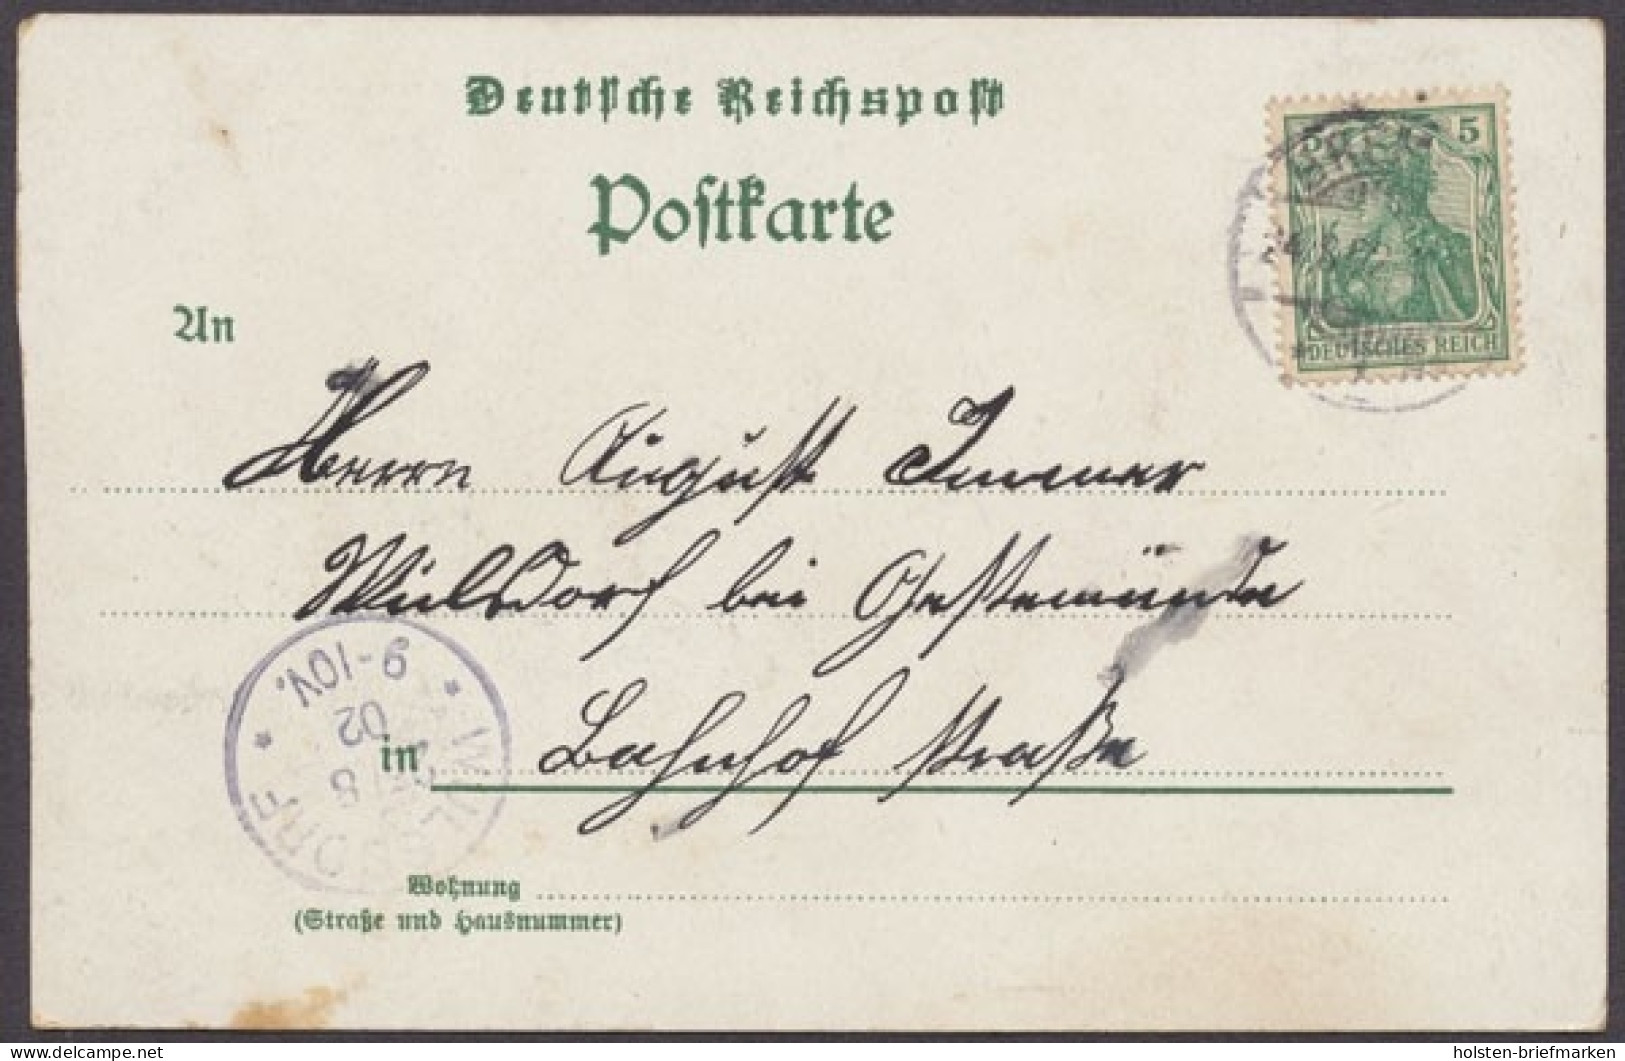 Deutsche Reichspost
Postkarte
5
DEUTSCHES REICH
An
Herrn August Immer
Wulsdorf bei Geestemünde
in Bahnhof Straße
* WULSDORF *
8
02
9-10V.
Wohnung
(Straße und Hausnummer)
delcampe.net
holsten-briefmarken